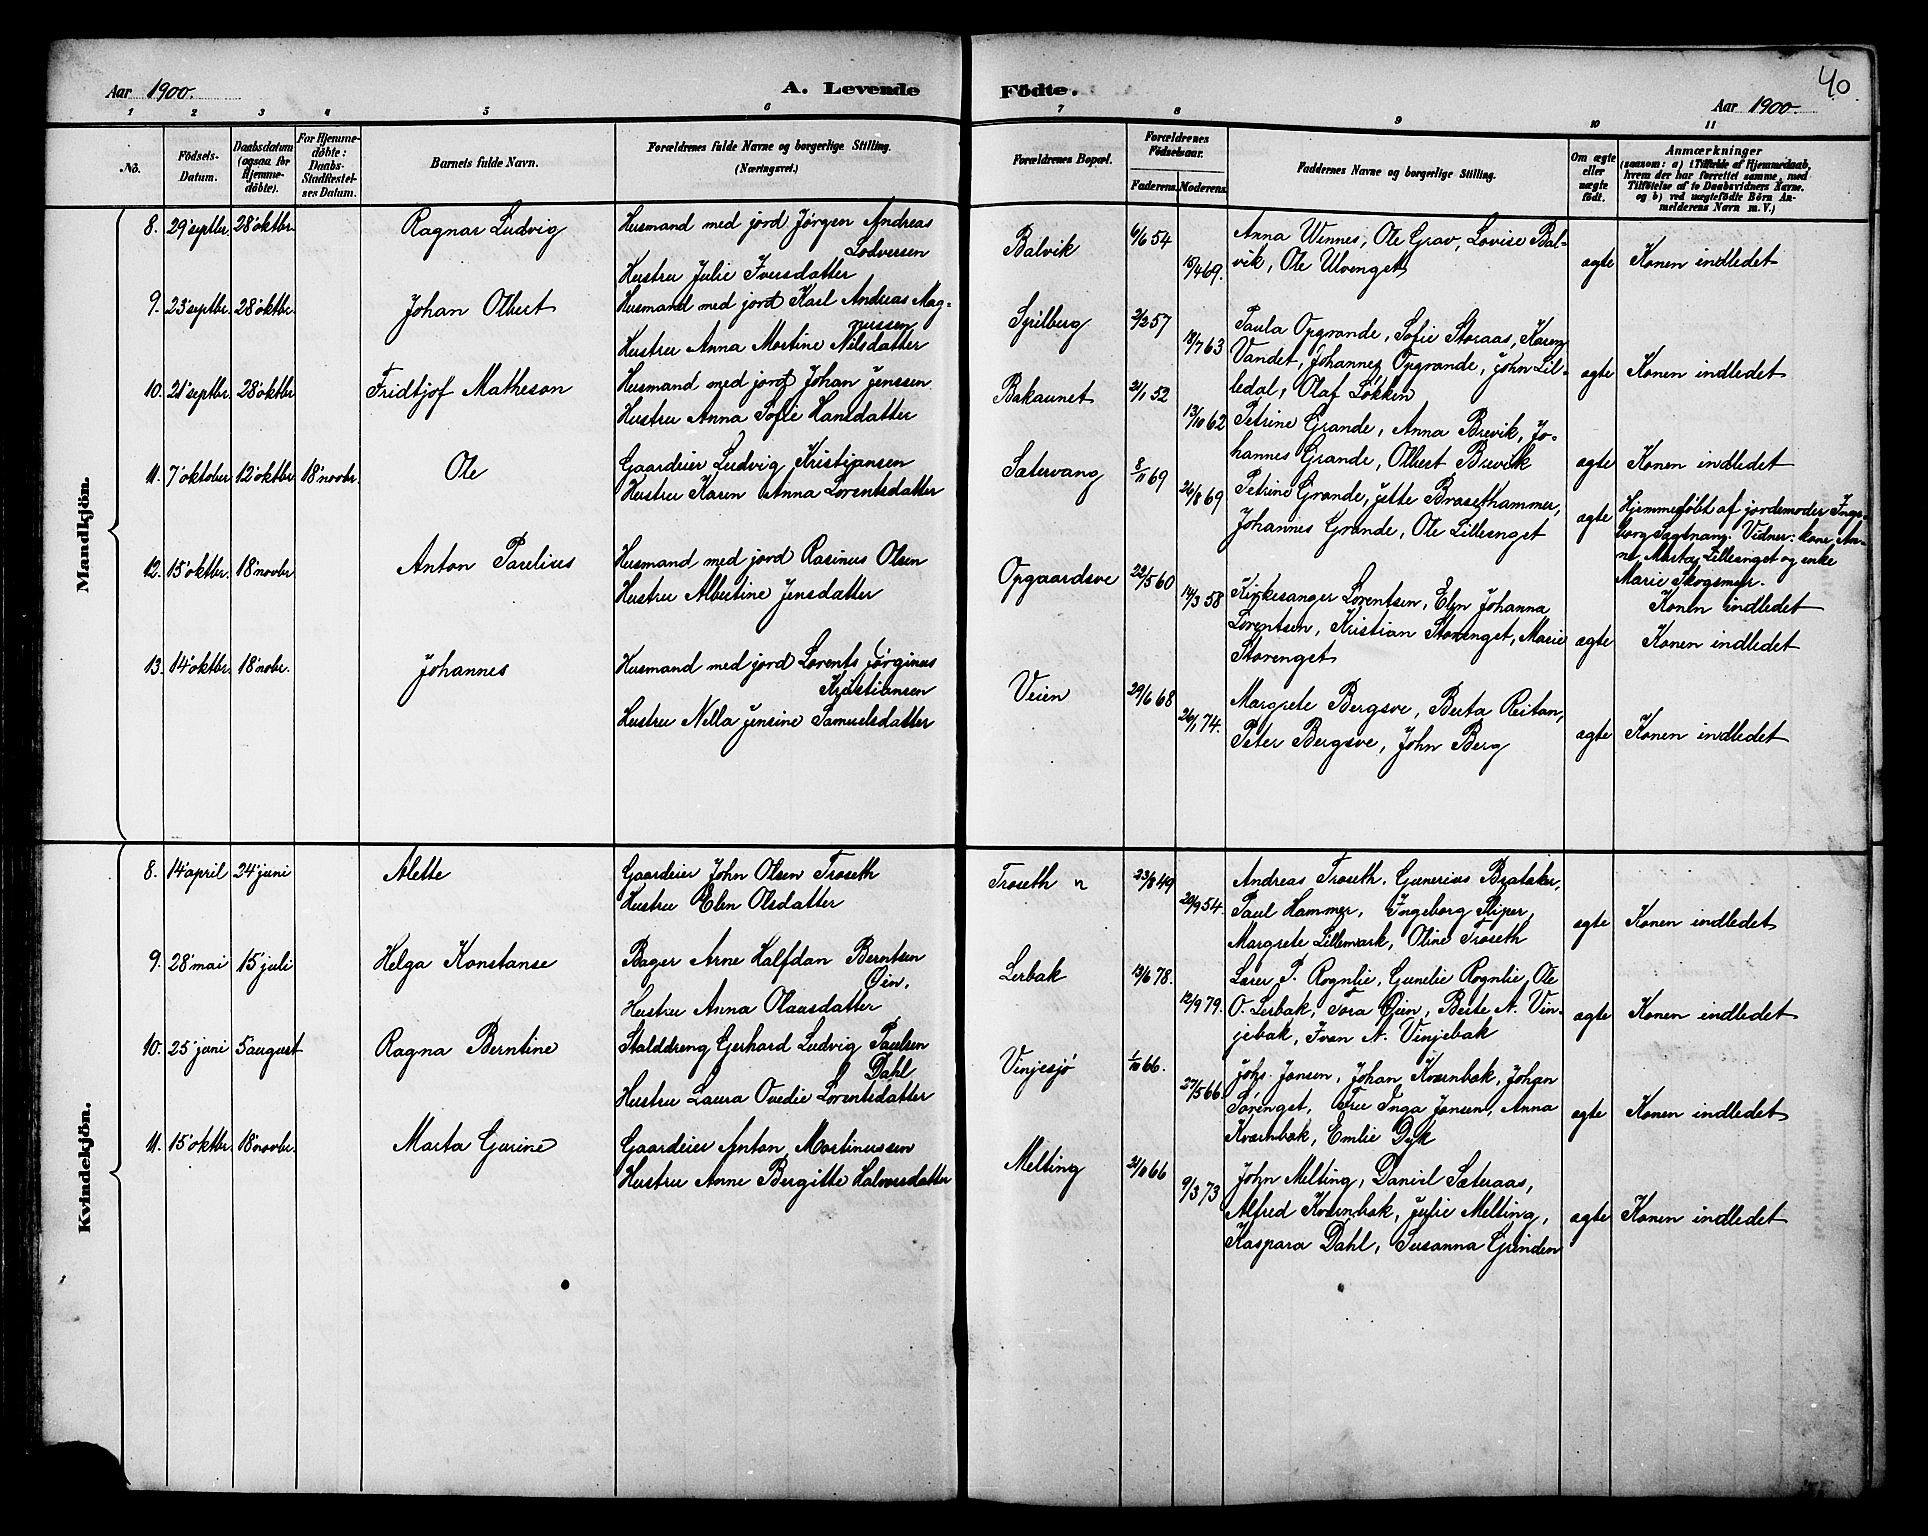 40
Aar 1900. A. Levende Födte. Aar 1900.
1 2 3 4 5 6 7 8 9 10 11
No.
Födsels-Datum.
Daabsdatum (ogsaa for Hjemme-döbte).
For Hjemme-döbte: Daabs-Stadfæstel-ses Datum.
Barnets fulde Navn.
Forældrenes fulde Navne og borgerlige Stilling.
(Næringsvei.)
Forældrenes Bopæl.
Forældrenes Födselsaar.
Faderens. Moderens.
Faddernes Navne og borgerlige Stilling.
Om ægte eller uægte födt.
Anmærkninger
(saasom: a) i Tilfælde af Hjemmedaab,
hvem der har forrettet samme, med
Tilföielse af to Daabsvidners Navne.
og b) ved uægtefödte Börn An-
melderens Navn m. V.)
Mandkjön.
8. 29' septbr. 28' oktbr. Ragnar Ludvig
Husmand med jord Jörgen Andreas
Lodversen
Hustru Julie Iversdatter
Balvik 6/6 54 15/4 69.
Anna Wennes, Ole Grav, Lovise Bal-
vik, Ole Ulvenget
ægte Konen indledet
9. 23' septbr. 28' oktbr. Johan Olbert
Husmand med jord Karl Andreas Mag-
nussen
Hustru Anna Martine Nilsdatter
Spilberg 2/2 57 18/7 63
Paula Opgrande, Sofie Storaas, Karen
Vandet, Johannes Opgrande, John Lil-
ledal, Olaf Løkken
ægte Konen indledet
10. 21' septbr. 28' oktbr Fridtjof Matheson
Husmand med jord Johan Jenssen
Hustru Anna Sofie Hansdatter
Bakaunet 21/1 52 13/10 62
Petrine Grande, Anna Brevik, Jo-
hannes Grande, Olbert Brevik
ægte Konen indledet
11. 7' oktober 12' oktbr 18' novbr. Ole
Gaardeier Ludvig Kristiansen
Hustru Karen Anna Lorentsdatter
Sætervang 8/11 69 26/8 69
Petrine Grande, Jette Brasethammer,
Johannes Grande, Ole Lillesnget
ægte
Hjemmedöbt af jordemoder Inge-
borg Sagtnang. Vidner: kone An-
ne Marta Lillesnget og enke
Marie Skogsmyr.
Konen indledet
12. 15' oktbr. 18' novbr Anton Paulius
Husmand med jord Rasinus Olsen
Hustru Albertine Jensdatter
Opgaardsve 22/5 60 14/3 58
Kirkesanger Lorentsen, Elen Johanna
Lorentsen, Kristian Storenget, Marie
Storenget
ægte Konen indledet
13. 14' oktbr. 18' nobr. Johannes
Husmand med jord Lorents Jørginus
Kristiansen
Hustru Nella Jensine Samuelsdatter
Veien 29/6 68 26/1 74.
Margrete Bergsve, Berta Reitan,
Peter Bergsve, John Berg
ægte Konen indledet
Kvindekjön.
8. 14' april 24' juni Alette
Gaardeier John Olsen Troseth
Hustru Elen Olsdatter
Troseth n 23/8 49 20/9 54.
Andreas Troseth, Gunerius Brataker,
Paul Hammer, Ingeborg Sliper,
Margrete Lillemark, Oline Troseth
ægte Konen indledet
9. 28' mai 15' juli Helga Konstanse
Bager Arne Halfdan Berntsen
Øien,
Hustru Anna Olausdatter
Lerbak 13/6 78. 12/9 79.
Lærer P. Rognlie, Gunelie Rognlie, Ole
O. Lerbak, Tora Øien, Berte A. Vin-
jebak, Iven A. Vinjebak
ægte Konen indledet
10. 25' juni 5' august Ragna Berntine
Stalddreng Gerhard Ludvig Paulsen
Dahl
Hustru Laura Ovedie Lorentsdatter
Vinjesjö 1/10 66. 27/5 66
Johs. Jansen, Johan Kvernbak, Johan
Sørenget, Fru Inga Jansen, Anna
Kvarnbak, Emlie Dyk
ægte Konen indledet
11. 15' oktbr. 18' novbr. Marta Gurine
Gaardeier Anton Martinussen
Hustru Anne Bergitte Halvorsdatter
Melting 21/10 66 9/3 73
John Melting, Daniel Sæteraas,
Alfred Kvarnbak, Julie Melting,
Kaspara Dahl, Susanna Grinden
ægte Konen indledet